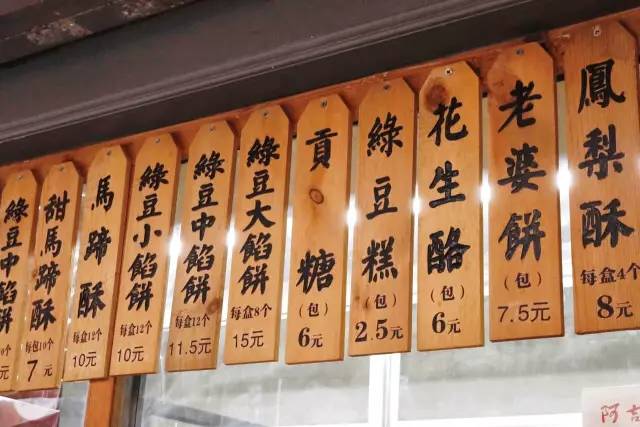 綠豆中餡餅
个
元
甜馬蹄酥
每包10个
7元
馬蹄酥
每盒12个
10元
綠豆小餡餅
每盒12个
10元
綠豆中餡餅
每盒12个
11.5元
綠豆大餡餅
每盒8个
15元
貢糖
(包)
6元
綠豆糕
(包)
2.5元
花生酪
(包)
6元
老婆餅
(包)
7.5元
鳳梨酥
每盒4个
8元
阿吉